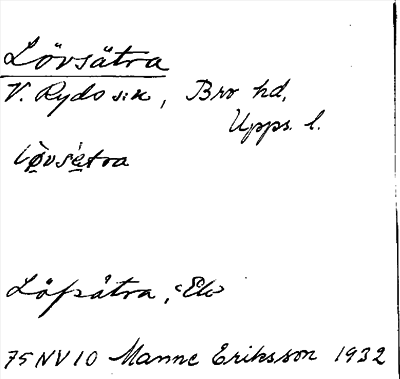 Lövsätra
V. Ryds s:n, Bro hd,
Upps. l.
Löfsätra, Ek
75 NV 10 Manne Eriksson 1932